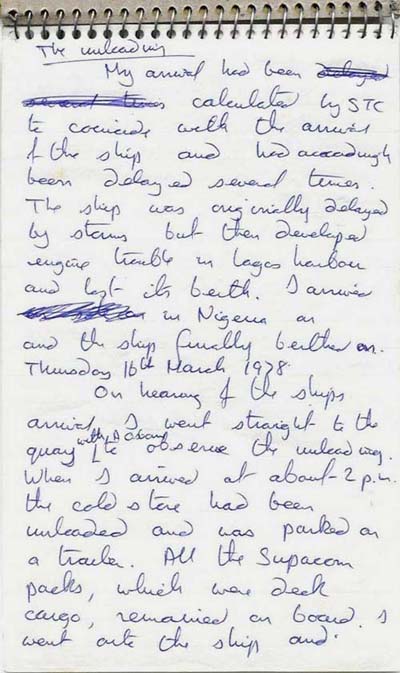 The unloading
My arrival had been delayed
several times calculated by STC
to coincide with the arrival
of the ship and had accordingly
been delayed several times.
The ship was originally delayed
by storms but then developed
engine trouble in Lagos harbour
and lost its berth. I arrived
in Nigeria on
and the ship finally berthed on
Thursday 16th March 1978.
On hearing of the ships
arrival, I went straight to the
with A
quay to observe the unloading.
When I arrived at about 2 p.m.
the cold store had been
unloaded and was parked on
a trailer. All the Supacom
packs, which were deck
cargo, remained on board. I
went onto the ship and